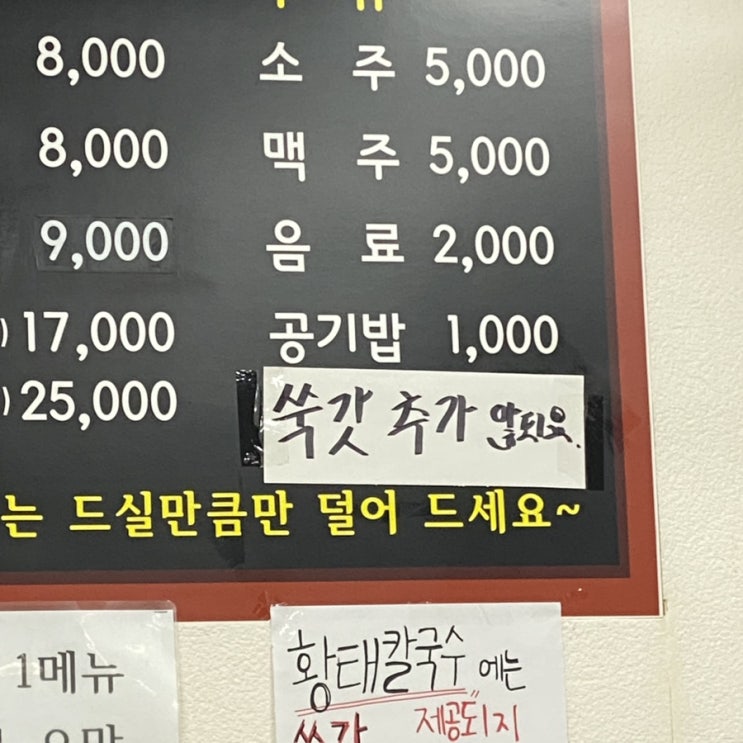 8,000 소 주 5,000
8,000 맥 주 5,000
9,000 음 료 2,000
)17,000 공기밥 1,000
)25,000
쑥갓 추가 않되요.
는 드실만큼만 덜어 드세요~
1메뉴
황태칼국수 에는
쑥갓 제공되지